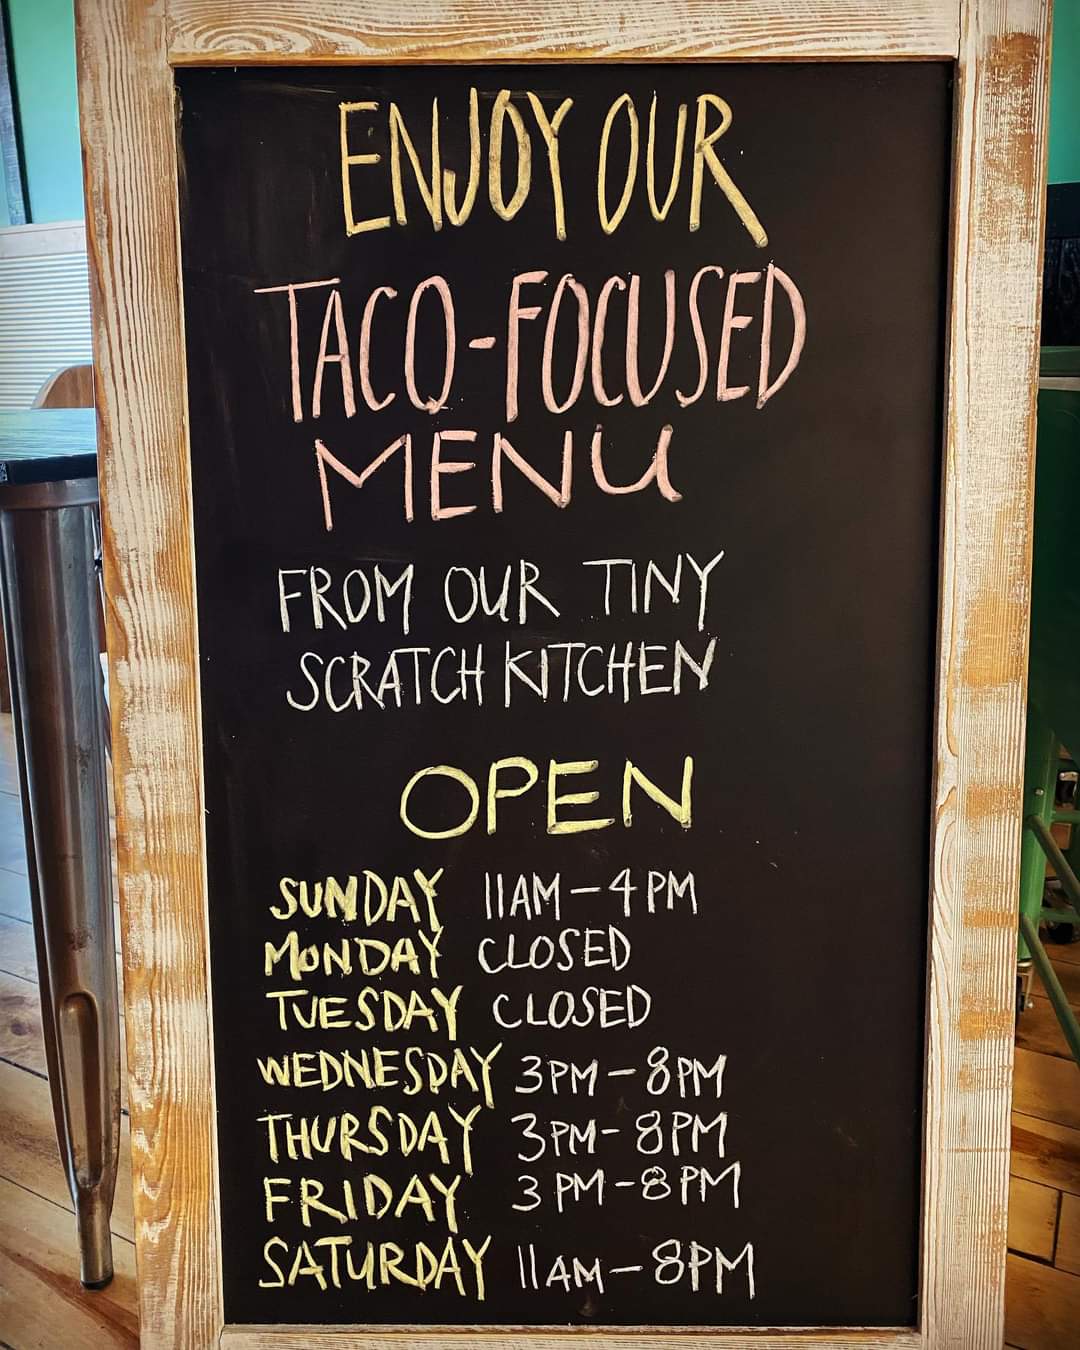 ENJOY OUR
TACO-FOCUSED
MENU
FROM OUR TINY
SCRATCH KITCHEN
OPEN
SUNDAY 11AM-4PM
MONDAY CLOSED
TUESDAY CLOSED
WEDNESDAY 3PM-8PM
THURSDAY 3PM-8PM
FRIDAY 3PM-8PM
SATURDAY 11AM-8PM